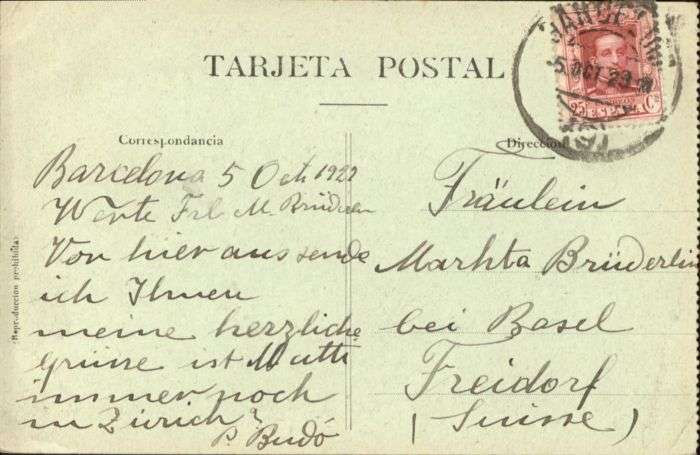 TARJETA POSTAL
BARCELONA
-5 OCT 23
25 ESPAÑA Cs
Correspondancia
Dirección
Reproducción prohibida
Barcelona 5 Oct 1922
Werte Frl M. Brüderlin
Von hier aus sende
ich Ihnen
meine herzliche
Grüsse ist Mutti
immer noch
in Zürich?
P. Budó
Fräulein
Markta Brüderlin
bei Basel
Freidorf
(Suisse)